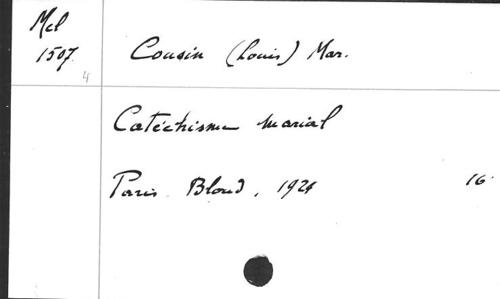 Mel
1507
4
Cousin (Louis) Mar.
Catéchisme marial
Paris. Bloud, 1926
16°